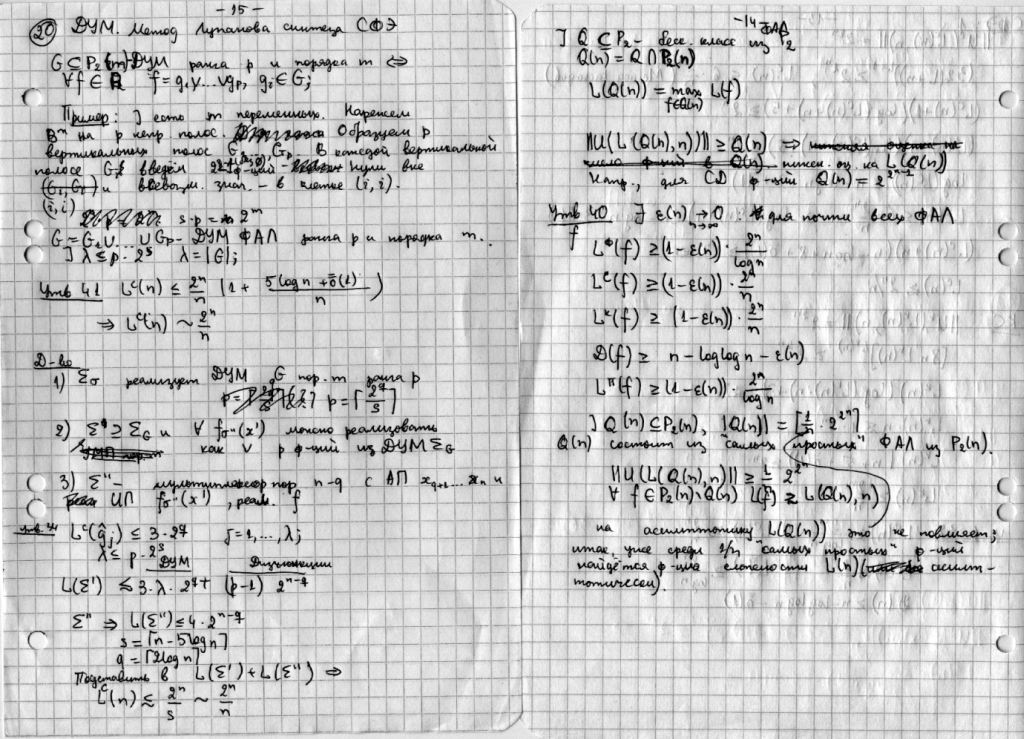 - 15 -
20 ДУМ. Метод Лупанова синтеза СФЭ
G ⊆ P₂(m) - ДУМ ранга p и порядка m ⇔
∀f ∈ P₂ f = g₁ ∨ ... ∨ gₚ, gᵢ ∈ G;
Пример: ] есть m переменных. Нарежем
Bᵐ на p непр. полос. Образуем p
вертикальных полос G₁, Gₚ. В каждой вертикальной
полосе введём ф-ций нули вне
и всевозм. знач. - в клетке (i, i).
(i, i)
s·p = 2ᵐ
G = G₁ ∪ ... ∪ Gₚ - ДУМ ФАЛ ранга p и порядка m.
] λ ≤ p · 2ˢ λ = |G|;
Утв 41 Lᶜ(n) ≤ 2ⁿ/n (1 + (5 log n + ō(1))/n)
⇒ Lᶜ(n) ~ 2ⁿ/n
Д-во
1) Σ_G реализует ДУМ G пор. m ранга p
p = ⌈2^q/s⌉
2) Σ' ⊇ Σ_G и ∀ f_σ''(x') можно реализовать
как ∨ p ф-ций из ДУМ Σ_G
3) Σ'' - мультиплексор пор. n-q с АП x_{q+1}, ... xₙ и
ИП f_σ''(x'), реал. f
Lᶜ(ĝ_j) ≤ 3 · 2^q j = 1, ..., λ;
λ ≤ p · 2ˢ
ДУМ Дизъюнкции
L(Σ') ≤ 3 · λ · 2^q + (p-1) 2^{n-q}
Σ'' ⇒ L(Σ'') ≤ 4 · 2^{n-q}
s = ⌈n - 5 log n⌉
q = ⌈2 log n⌉
Подставить в L(Σ') + L(Σ'') ⇒
Lᶜ(n) ≲ 2ⁿ/s ~ 2ⁿ/n
- 14 -
] Q ⊆ P₂ - беск. класс ФАЛ из P₂
Q(n) = Q ∩ P₂(n)
L(Q(n)) = max_{f∈Q(n)} L(f)
‖U(L(Q(n), n))‖ ≥ Q(n) ⇒
нижн. оц. ка L(Q(n))
Напр., для СД ф-ций Q(n) = 2^{2^{n-1}}
Утв 40 ] ε(n) → 0 n→∞ : для почти всех ФАЛ
f
L^Ф(f) ≥ (1 - ε(n)) · 2ⁿ/log n
Lᶜ(f) ≥ (1 - ε(n)) · 2ⁿ/n
Lᴷ(f) ≥ (1 - ε(n)) · 2ⁿ/n
D(f) ≥ n - log log n - ε(n)
Lᴨ(f) ≥ (1 - ε(n)) · 2ⁿ/log n
] Q(n) ⊆ P₂(n), |Q(n)| = ⌈1/n · 2^{2ⁿ}⌉
Q(n) состоит из "самых простых" ФАЛ из P₂(n).
‖U(L(Q(n), n))‖ ≥ 1/n 2^{2ⁿ}
∀ f ∈ P₂(n) \ Q(n) L(f) ≥ L(Q(n), n)
на асимптотику L(Q(n)) это не повлияет;
итак, уже среди 1/n "самых простых" ф-ций
найдётся ф-ция сложности L(n) (асимп-
тотически).